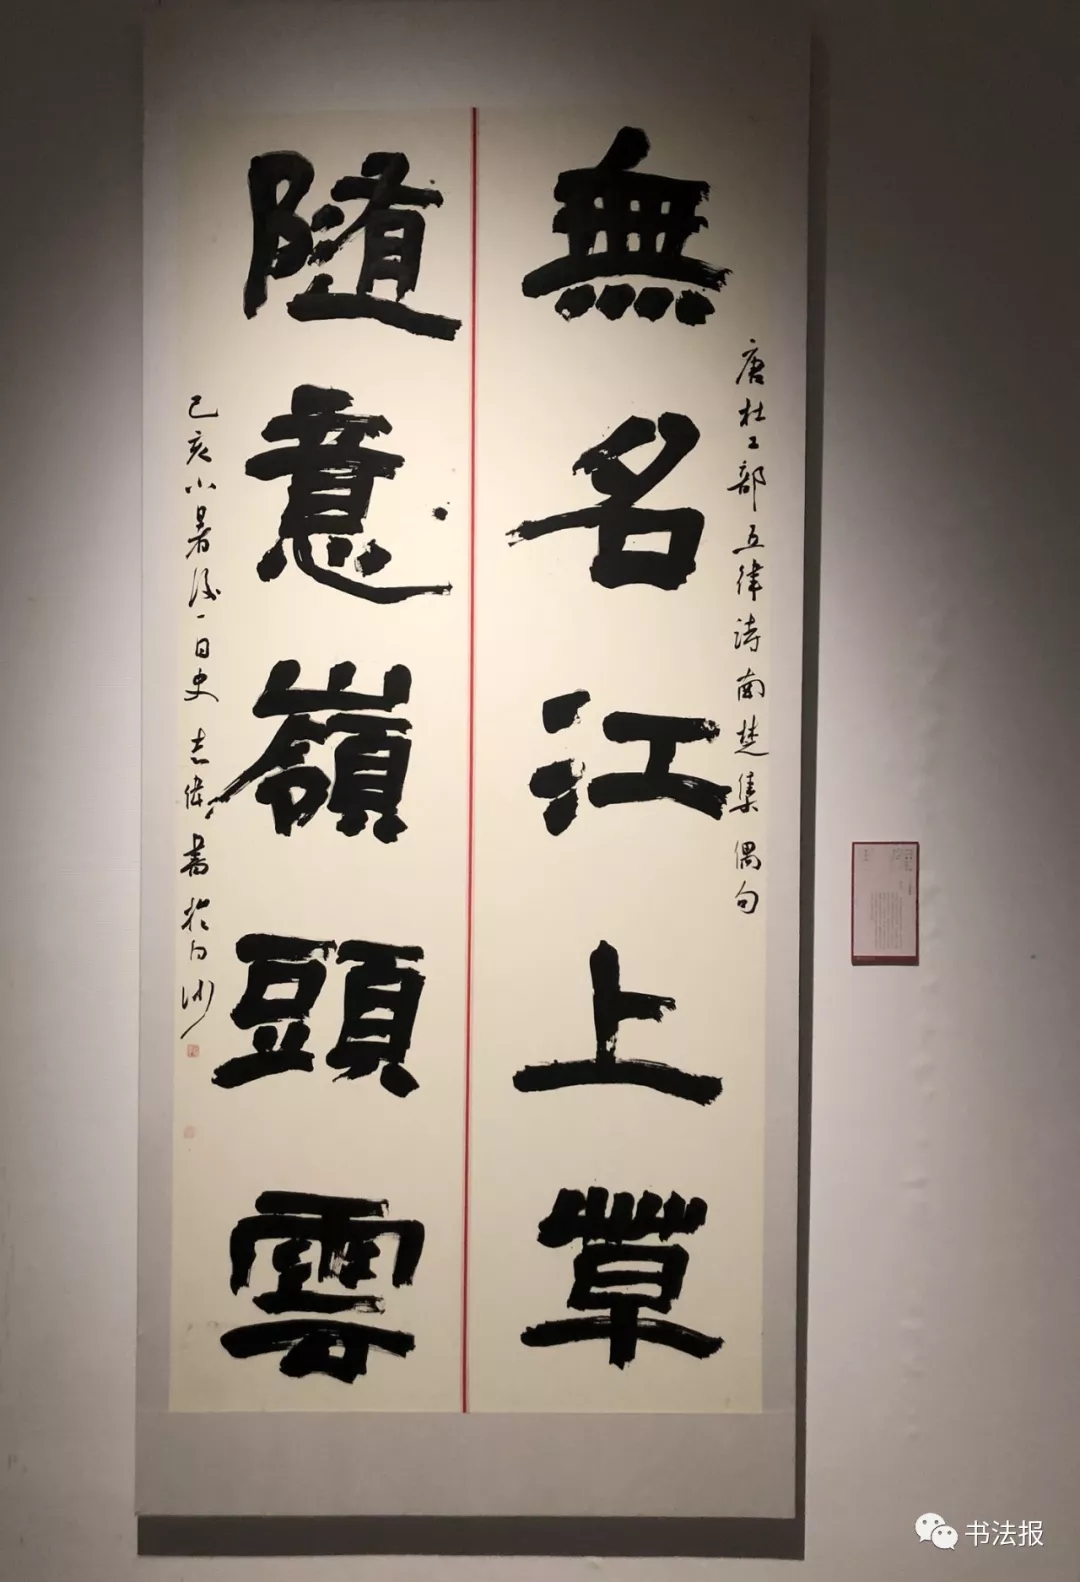 唐杜工部五律诗南楚集偶句
無名江上草
隨意嶺頭雲
己亥小暑後一日史志偉書於白沙
书法报